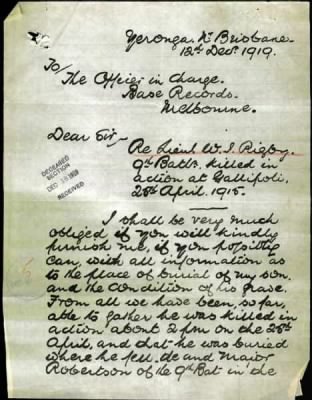 Yeronga. Nr Brisbane.
12th Decr. 1919.
To
The Officer in Charge.
Base Records.
Melbourne.
Dear Sir,-
Re Lieut W. J. Rigby.
9th Battn. killed in
action at Gallipoli,
25th April. 1915.
DECEASED
SECTION
DEC 1919
RECEIVED
I shall be very much
obliged if you will kindly
furnish me, if you possibly
can, with all information as
to the place of burial of my son.
and the condition of his grave.
From all we have been, so far,
able to gather he was killed in
action about 2 pm on the 25th
April, and that he was buried
where he fell. He and Major
Robertson of the 9th Bat in the